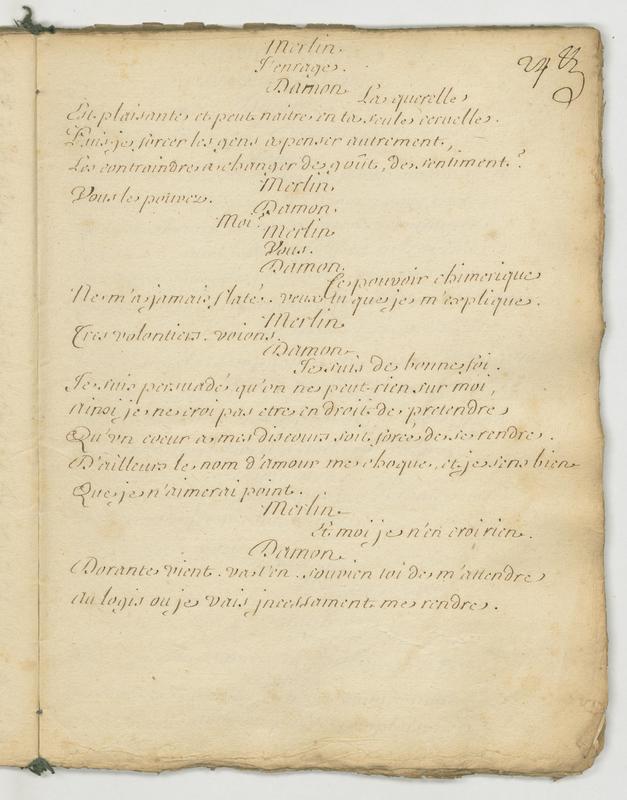 Merlin.
J'enrage.
Damon.
La querelle
Est plaisante et peut naitre en ta seule cervelle.
Puis je forcer les gens a penser autrement,
Les contraindre a changer de goût, de sentiment?
Merlin.
Vous le pouvez.
Damon.
Moi?
Merlin
Vous.
Damon.
Le pouvoir chimerique
Ne m'a jamais flaté. veux tu que je m'explique.
Merlin
Tres volontiers. voions.
Damon
Je suis de bonne foi.
Je suis persuadé qu'on ne peut rien sur moi,
ainsi je ne croi pas etre en droit de pretendre
Qu'vn coeur a mes discours soit forcé de se rendre.
D'ailleurs le nom d'amour me choque, et je sens bien
Que je n'aimerai point.
Merlin
Et moi je n'en croi rien.
Damon.
Dorante vient. va t'en. souvien toi de m'attendre
au logis ou je vais jncessament me rendre.